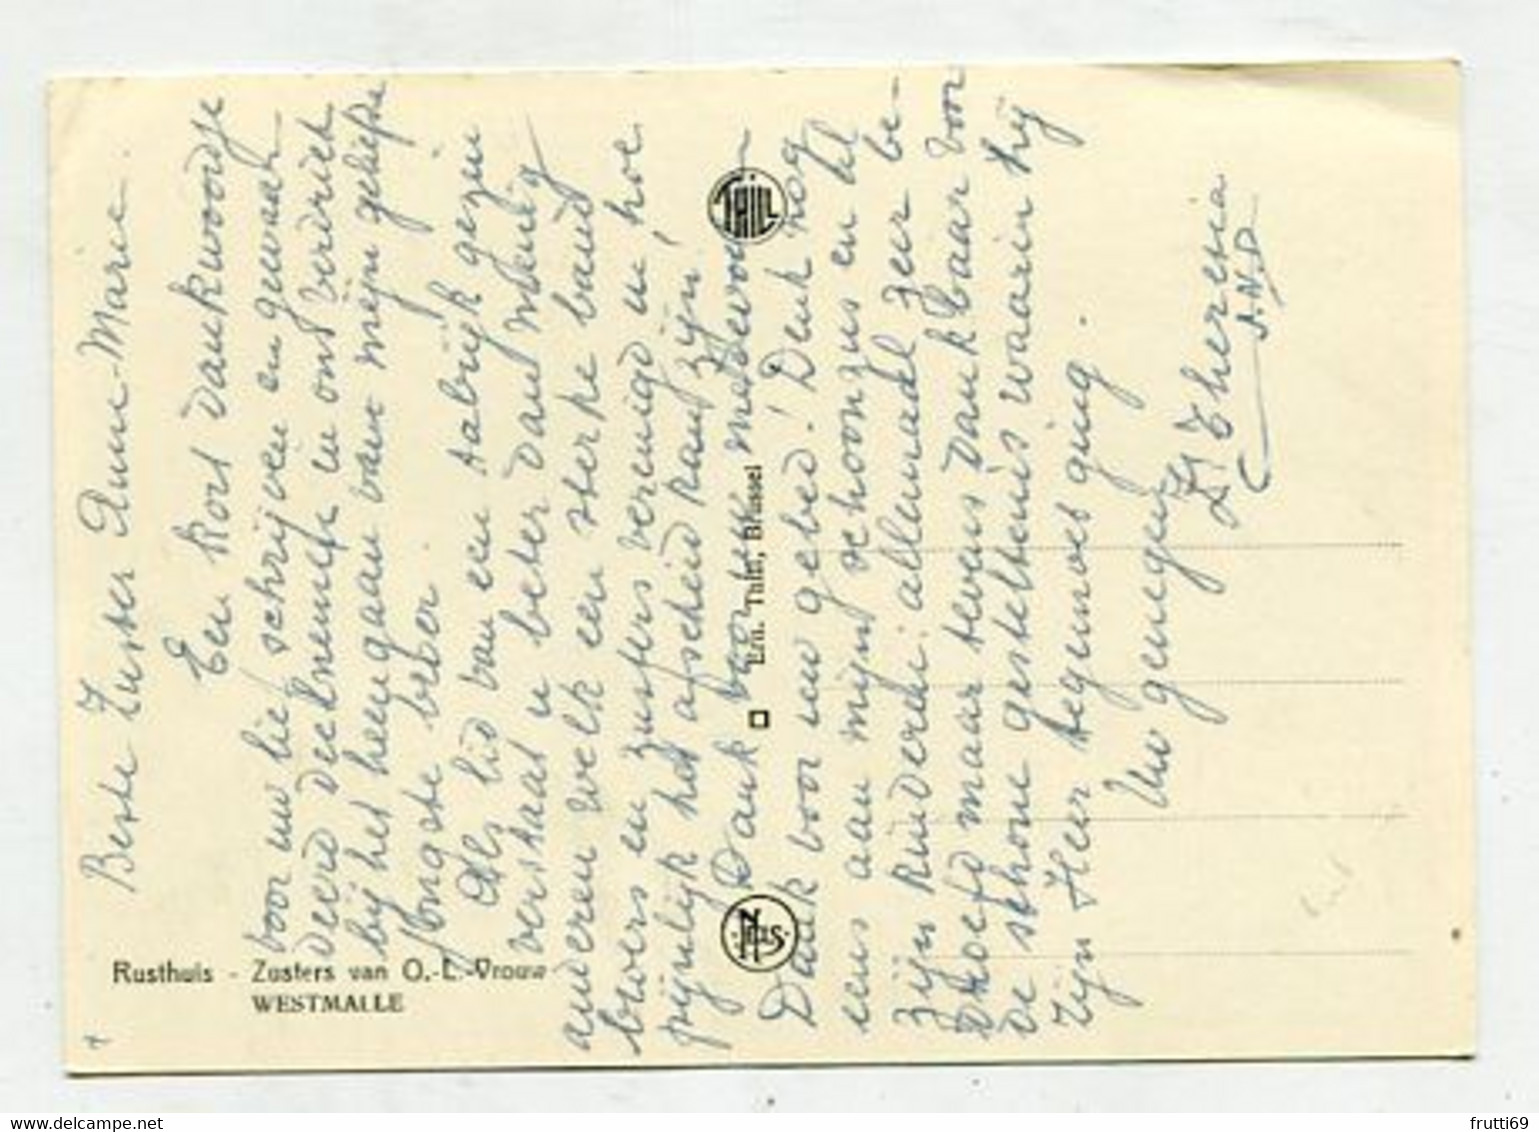 Beste Zuster Anne-Marie.
Een kort dankwoordje
voor uw lief schrijven en gewaar-
deerd deelneming in ons verdriet
bij het heengaan van mijn geliefde
jongste broer.
Als lid van een talrijk gezin
verstaat u beter dan menig
anderen welk een sterke band
broers en zusters verenigd en, hoe
pijnlijk het afscheid kan zijn,
Dank voor het medevoelen
Dank voor uw gebed! Denk nog
eens aan mijn schoonzus en al
zijn kinderen: allemaal zeer be-
droefd maar tevens dankbaar voor
de schone gesteltenis waarin hij
zijn Heer tegemoet ging.
Uw genegen
Zr Theresia
S.N.D.
Rusthuis - Zusters van O.-L.-Vrouw
WESTMALLE
Ern. Thill, Brussel
THILL
NELS
frutti69
delcampe.net